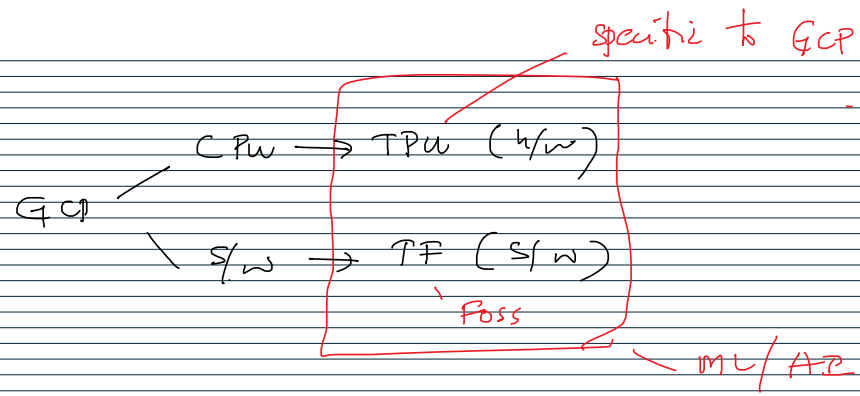 specific to GCP
CPU → TPU (h/w)
GCP
S/w → TF (S/w)
Foss
ML/AI